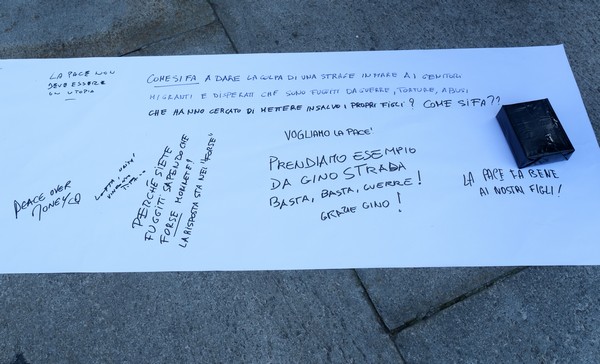 LA PACE NON
DEVE ESSERE
UN UTOPIA
COME SI FA A DARE LA COLPA DI UNA STRAGE IN MARE AI GENITORI
MIGRANTI E DISPERATI CHE SONO FUGGITI DA GUERRE, TORTURE, ABUSI
CHE HANNO CERCATO DI METTERE IN SALVO I PROPRI FIGLI? COME SI FA??
PEACE OVER
MONEY
PERCHÉ SIETE
FUGGITI SAPENDO CHE
FORSE MORIRETE?
LA RISPOSTA STA NEL "FORSE"
VOGLIAMO LA PACE
PRENDIAMO ESEMPIO
DA GINO STRADA
BASTA, BASTA, GUERRE!
GRAZIE GINO!
LA PACE FA BENE
AI NOSTRI FIGLI!